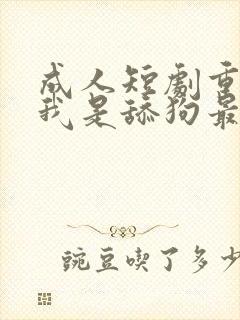 成人短劇重
我是舔狗最
豌豆喫了多少